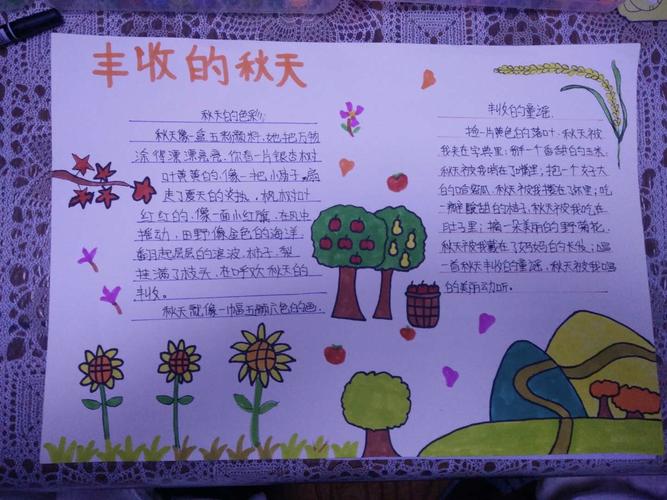 丰收的秋天
秋天的色彩
秋天像一盒五彩颜料,她把万物
涂得漂漂亮亮,你看一片银杏树
叶黄黄的,像一把小扇子,扇
走了夏天的炎热,枫树叶
红红的,像一面小红旗,在风中
摇动,田野像金色的海洋,
翻起层层的滚波,柿子,梨
挂满了枝头,在呼欢秋天的
丰收。
秋天就像一幅五颜六色的画.
丰收的童谣
捡一片黄色的落叶,秋天被
我夹在字典里;掰一个香甜的玉米,
秋天被我啃在了嘴里;抱一个大大
的哈蜜瓜,秋天被我搂在了怀里;吃
一瓣酸甜的桔子,秋天被我吃在
肚子里;摘一朵美丽的野菊花,
秋天被我戴在了妈妈的长发;唱
一首秋天丰收的童谣,秋天被我唱
的美丽动听。